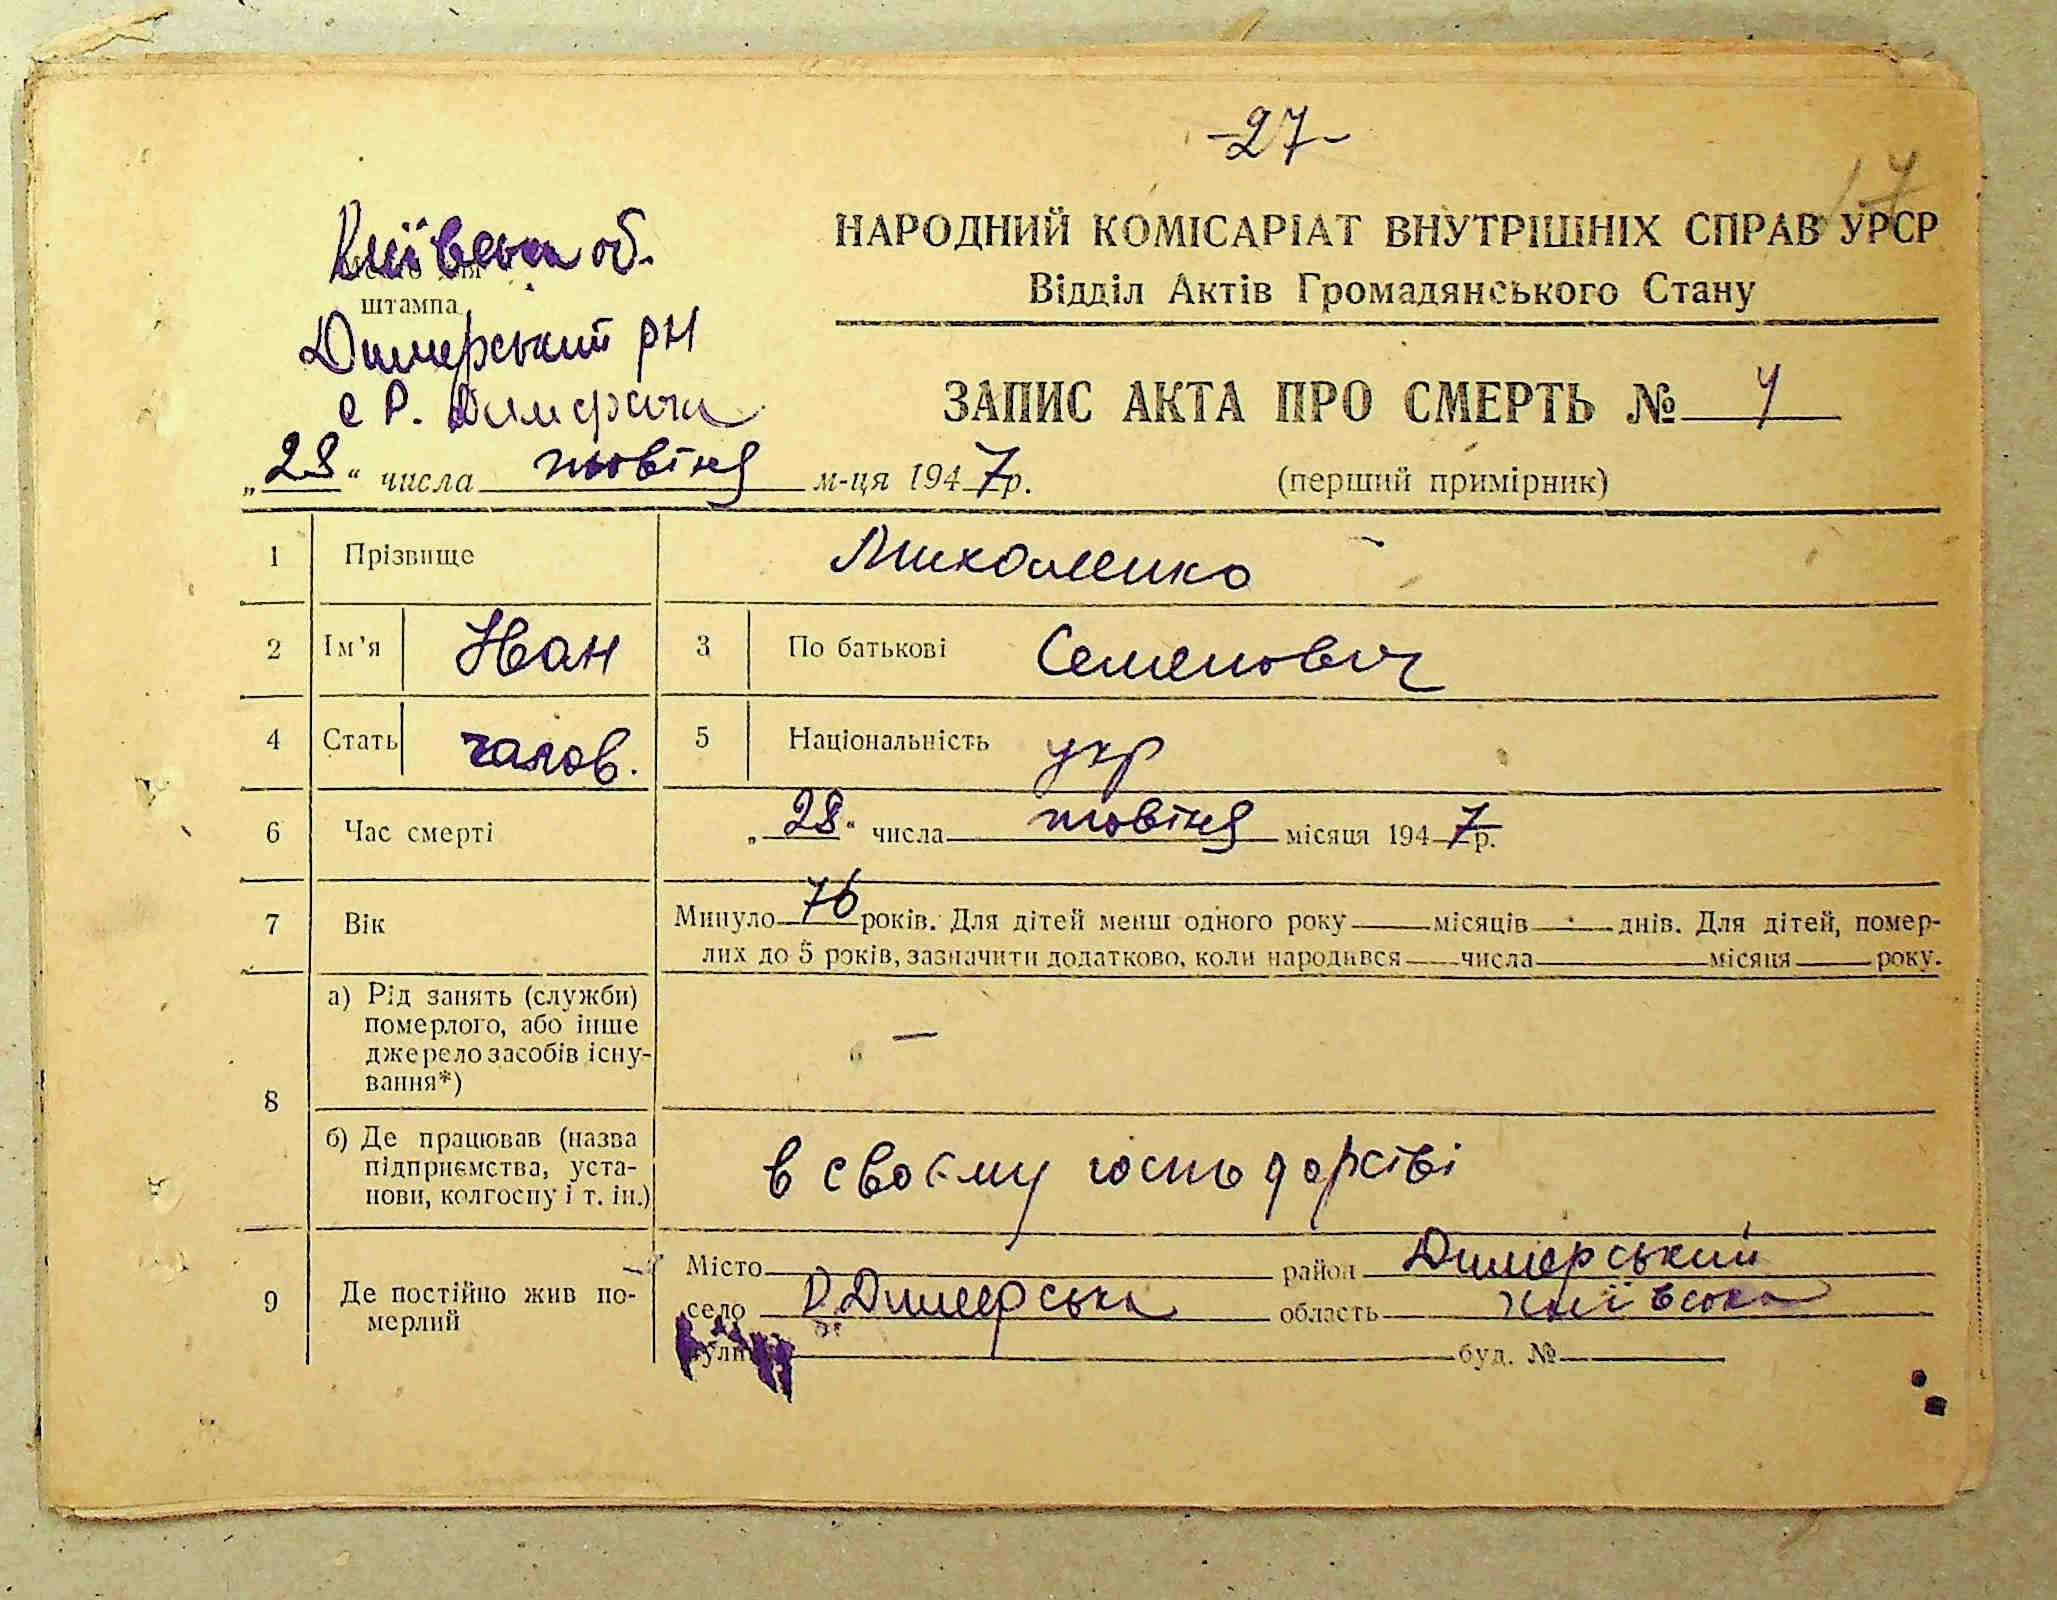 -27-
17
Київська об.
штампа
Димерський рн
с Р. Димерська
НАРОДНИЙ КОМІСАРІАТ ВНУТРІШНІХ СПРАВ УРСР
Відділ Актів Громадянського Стану
ЗАПИС АКТА ПРО СМЕРТЬ №
„28“ числа жовтня м-ця 1947р.
(перший примірник)
1 Прізвище Михоленко
2 Ім'я Іван 3 По батькові Семенович
4 Стать чолов. 5 Національність укр
6 Час смерті „28“ числа жовтня місяця 1947р.
7 Вік Минуло 76 років. Для дітей менш одного року — місяців — днів. Для дітей, помер-
лих до 5 років, зазначити додатково, коли народився — числа — місяця — року.
8 а) Рід занять (служби)
померлого, або інше
джерело засобів існу-
вання*) —
б) Де працював (назва
підприємства, уста-
нови, колгоспу і т. ін.) в своєму господорстві
9 Де постійно жив по-
мерлий
Місто район Димерський
село Р. Димерська область Київська
буд. №